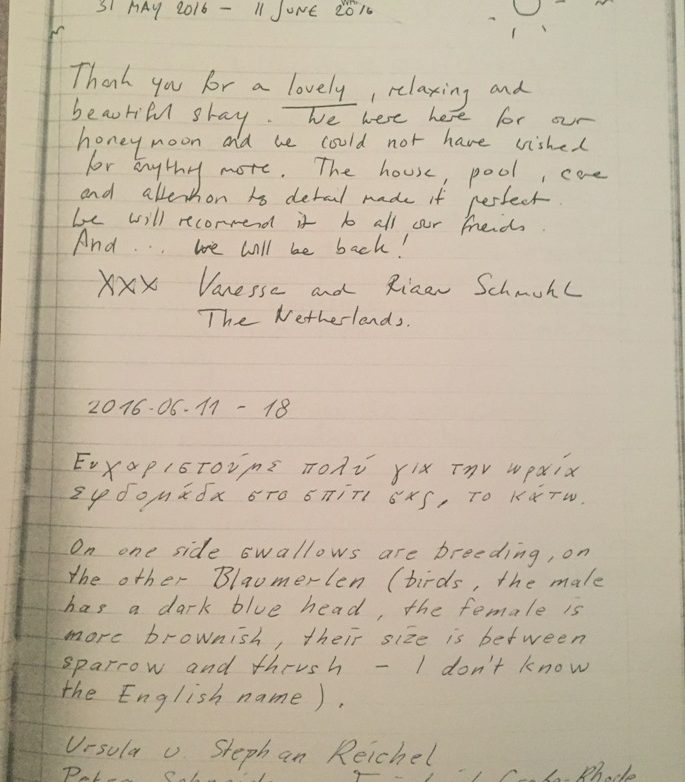 31 MAY 2016 - 11 JUNE 2016
Thank you for a lovely, relaxing and
beautiful stay. We were here for our
honeymoon and we could not have wished
for anything more. The house, pool, care
and attention to detail made it perfect.
We will recommend it to all our friends.
And ... we will be back!
XXX Vanessa and Riaan Schmuhl
The Netherlands.
2016-06-11 - 18
Ευχαριστούμε πολύ για την ωραία
εφδομάδα στο σπίτι σας, το κάτω.
On one side swallows are breeding, on
the other Blaumerlen (birds, the male
has a dark blue head, the female is
more brownish, their size is between
sparrow and thrush - I don't know
the English name).
Ursula u. Stephan Reichel
Petra